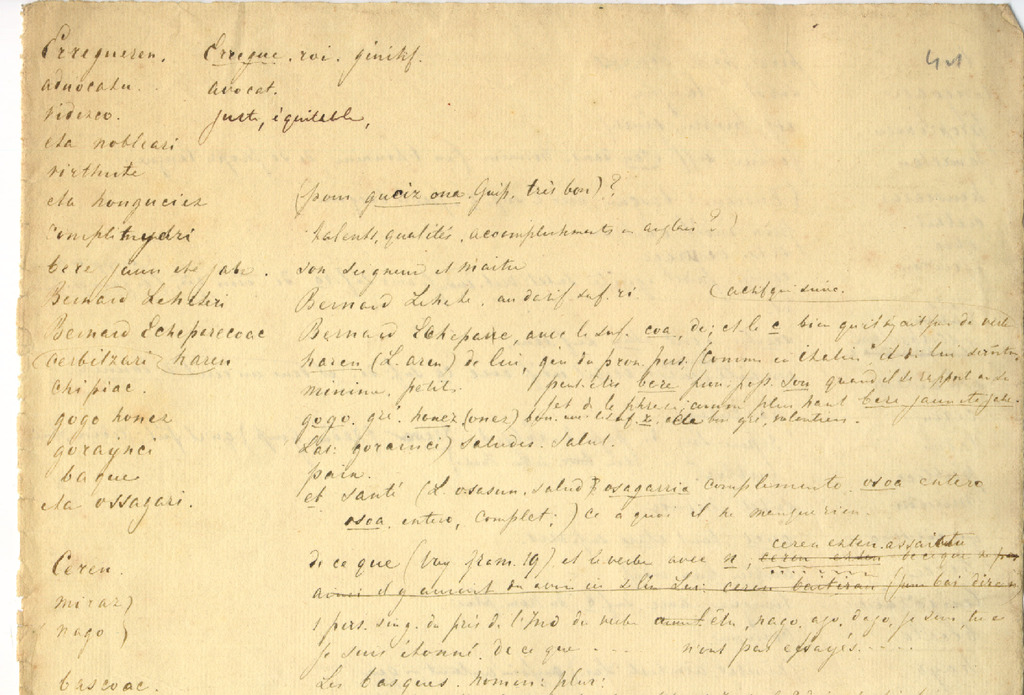 Erregueren. Erregue. roi. génitif.
advocatu. avocat.
videzco. juste, équitable,
eta nobleari
virthute
eta honguciez (pour guciz ona. Guip. très bon)?
complituari talents, qualités, accomplishments en anglais?)
bere jaun eta jabe. son seigneur et maitre
Bernard Leheteri Bernard Lehete. au datif suf. ri. (actif qui suive.
Bernard Echeparecoac Bernard Echeparre, avec le suf. coa, de; et le c bien qu'il soit de verbe
cerbitzari haren haren (L. aren) de lui, gen. du pron. pers. (comme en italien di lui
chipiac. minime, petit. peut-être bere pron. poss. son quand il se rapport au su
jet de la phrase, comme plus haut bere jaun eta jabe.
gogo honez gogo. gré. honez (onez) bon. de bon gré, volontiers.
goraynci Lar. gorainci) saludes. salut.
baque paix.
eta ossagari. et santé (L. osasun, salud osagarria complemento. osoa entero
osoa. entero, complet;) ce à quoi il ne manque rien.
ceren esten assaiatu
Ceren. de ce que (Voy fram. 19) et le verbe avec n, ceren esten de ce que
avoir Lar. ceren baitiran
miraz)
nago) 1 pers. sing. du prés. de l'Ind du verbe être, nago, ago, dago, je suis,
je suis étonné. de ce que ... n'ont pas essayés.....
bascoac. Les basques. nomin: plur: